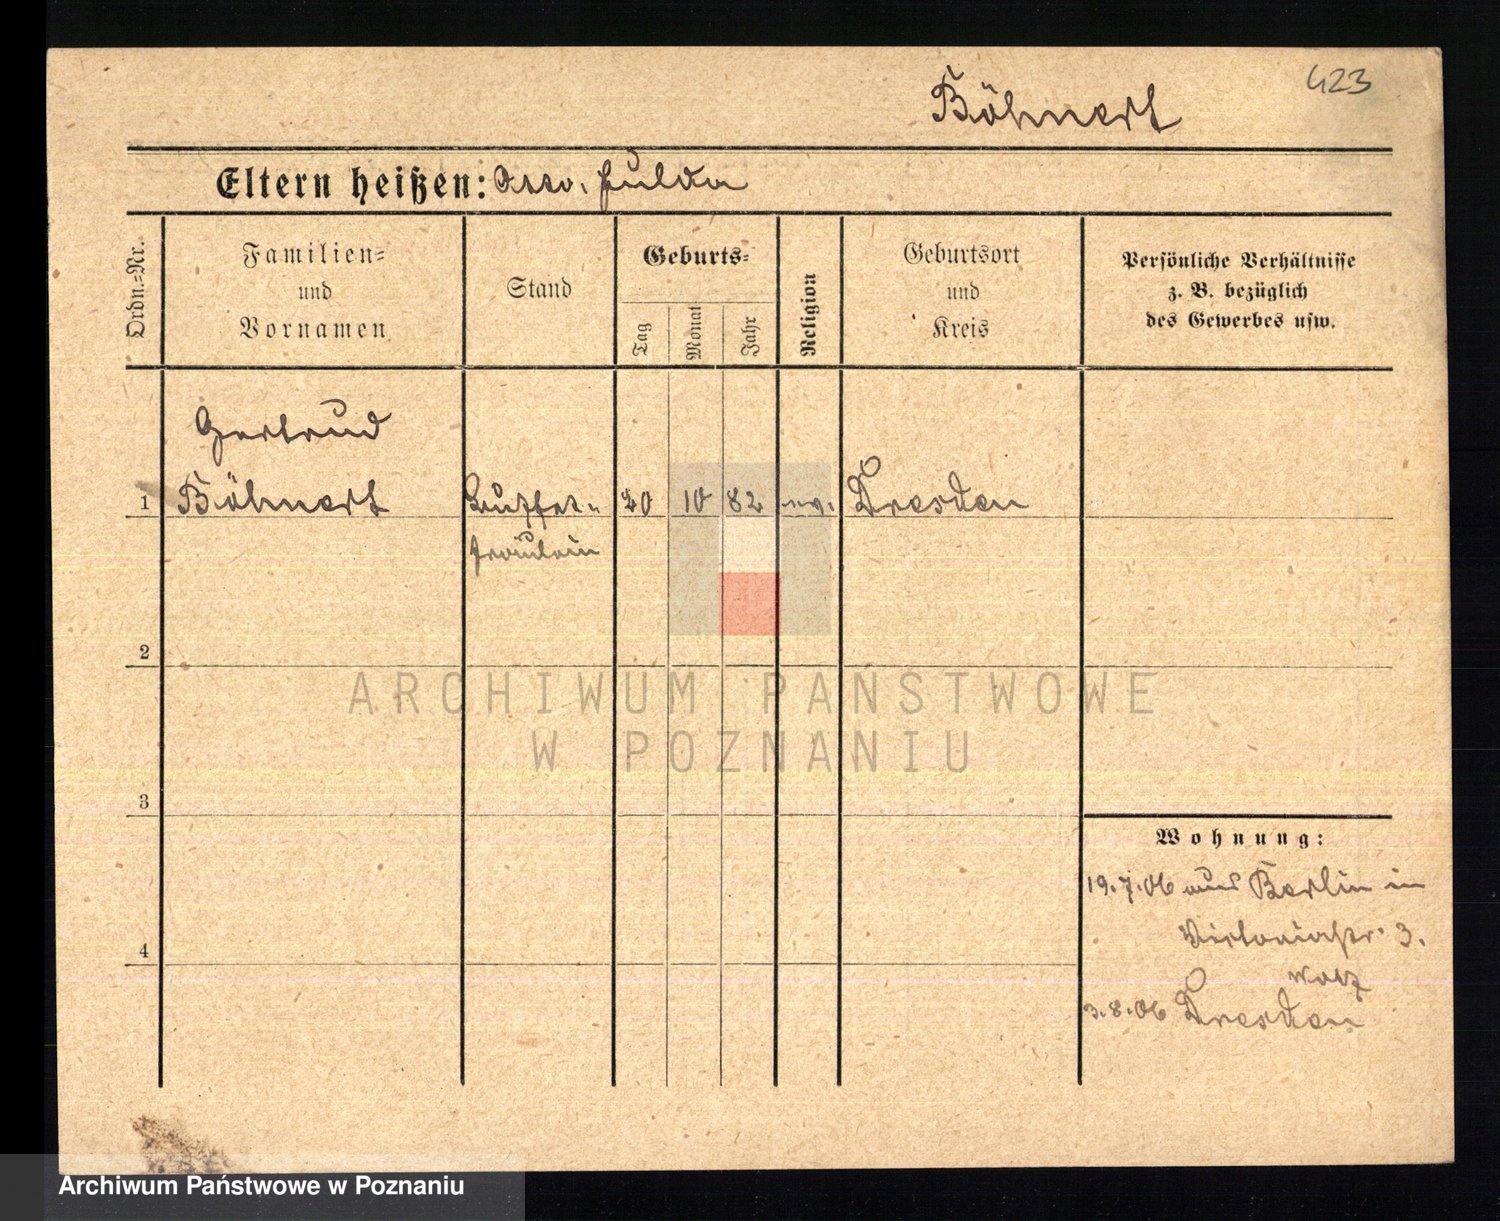 423
Böhnert
Eltern heißen: Otto, Hulda
Ordn.=Nr.
Familien=
und
Vornamen
Stand
Geburts=
Tag
Monat
Jahr
Religion
Geburtsort
und
Kreis
Persönliche Verhältnisse
z. B. bezüglich
des Gewerbes usw.
Gertrud
1 Böhnert Buffet= 20 10 82 ev. Dresden
fräulein
2
3
4
Wohnung:
19.7.06 aus Berlin in
Viktoriastr. 3.
3.8.06 Dresden
ARCHIWUM PAŃSTWOWE
W POZNANIU
Archiwum Państwowe w Poznaniu